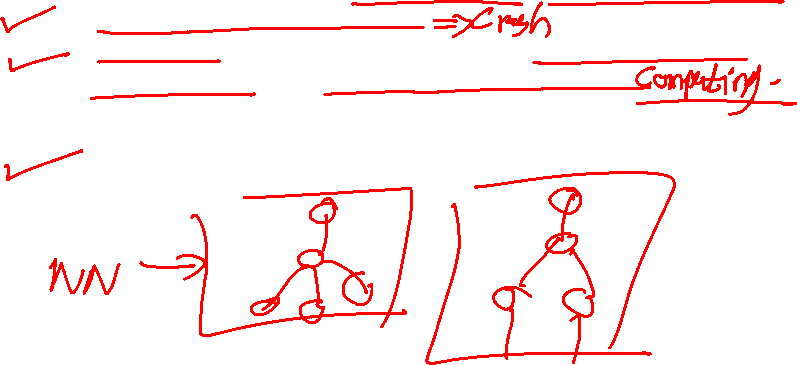 ⇒ Crash
Computing.
NN →